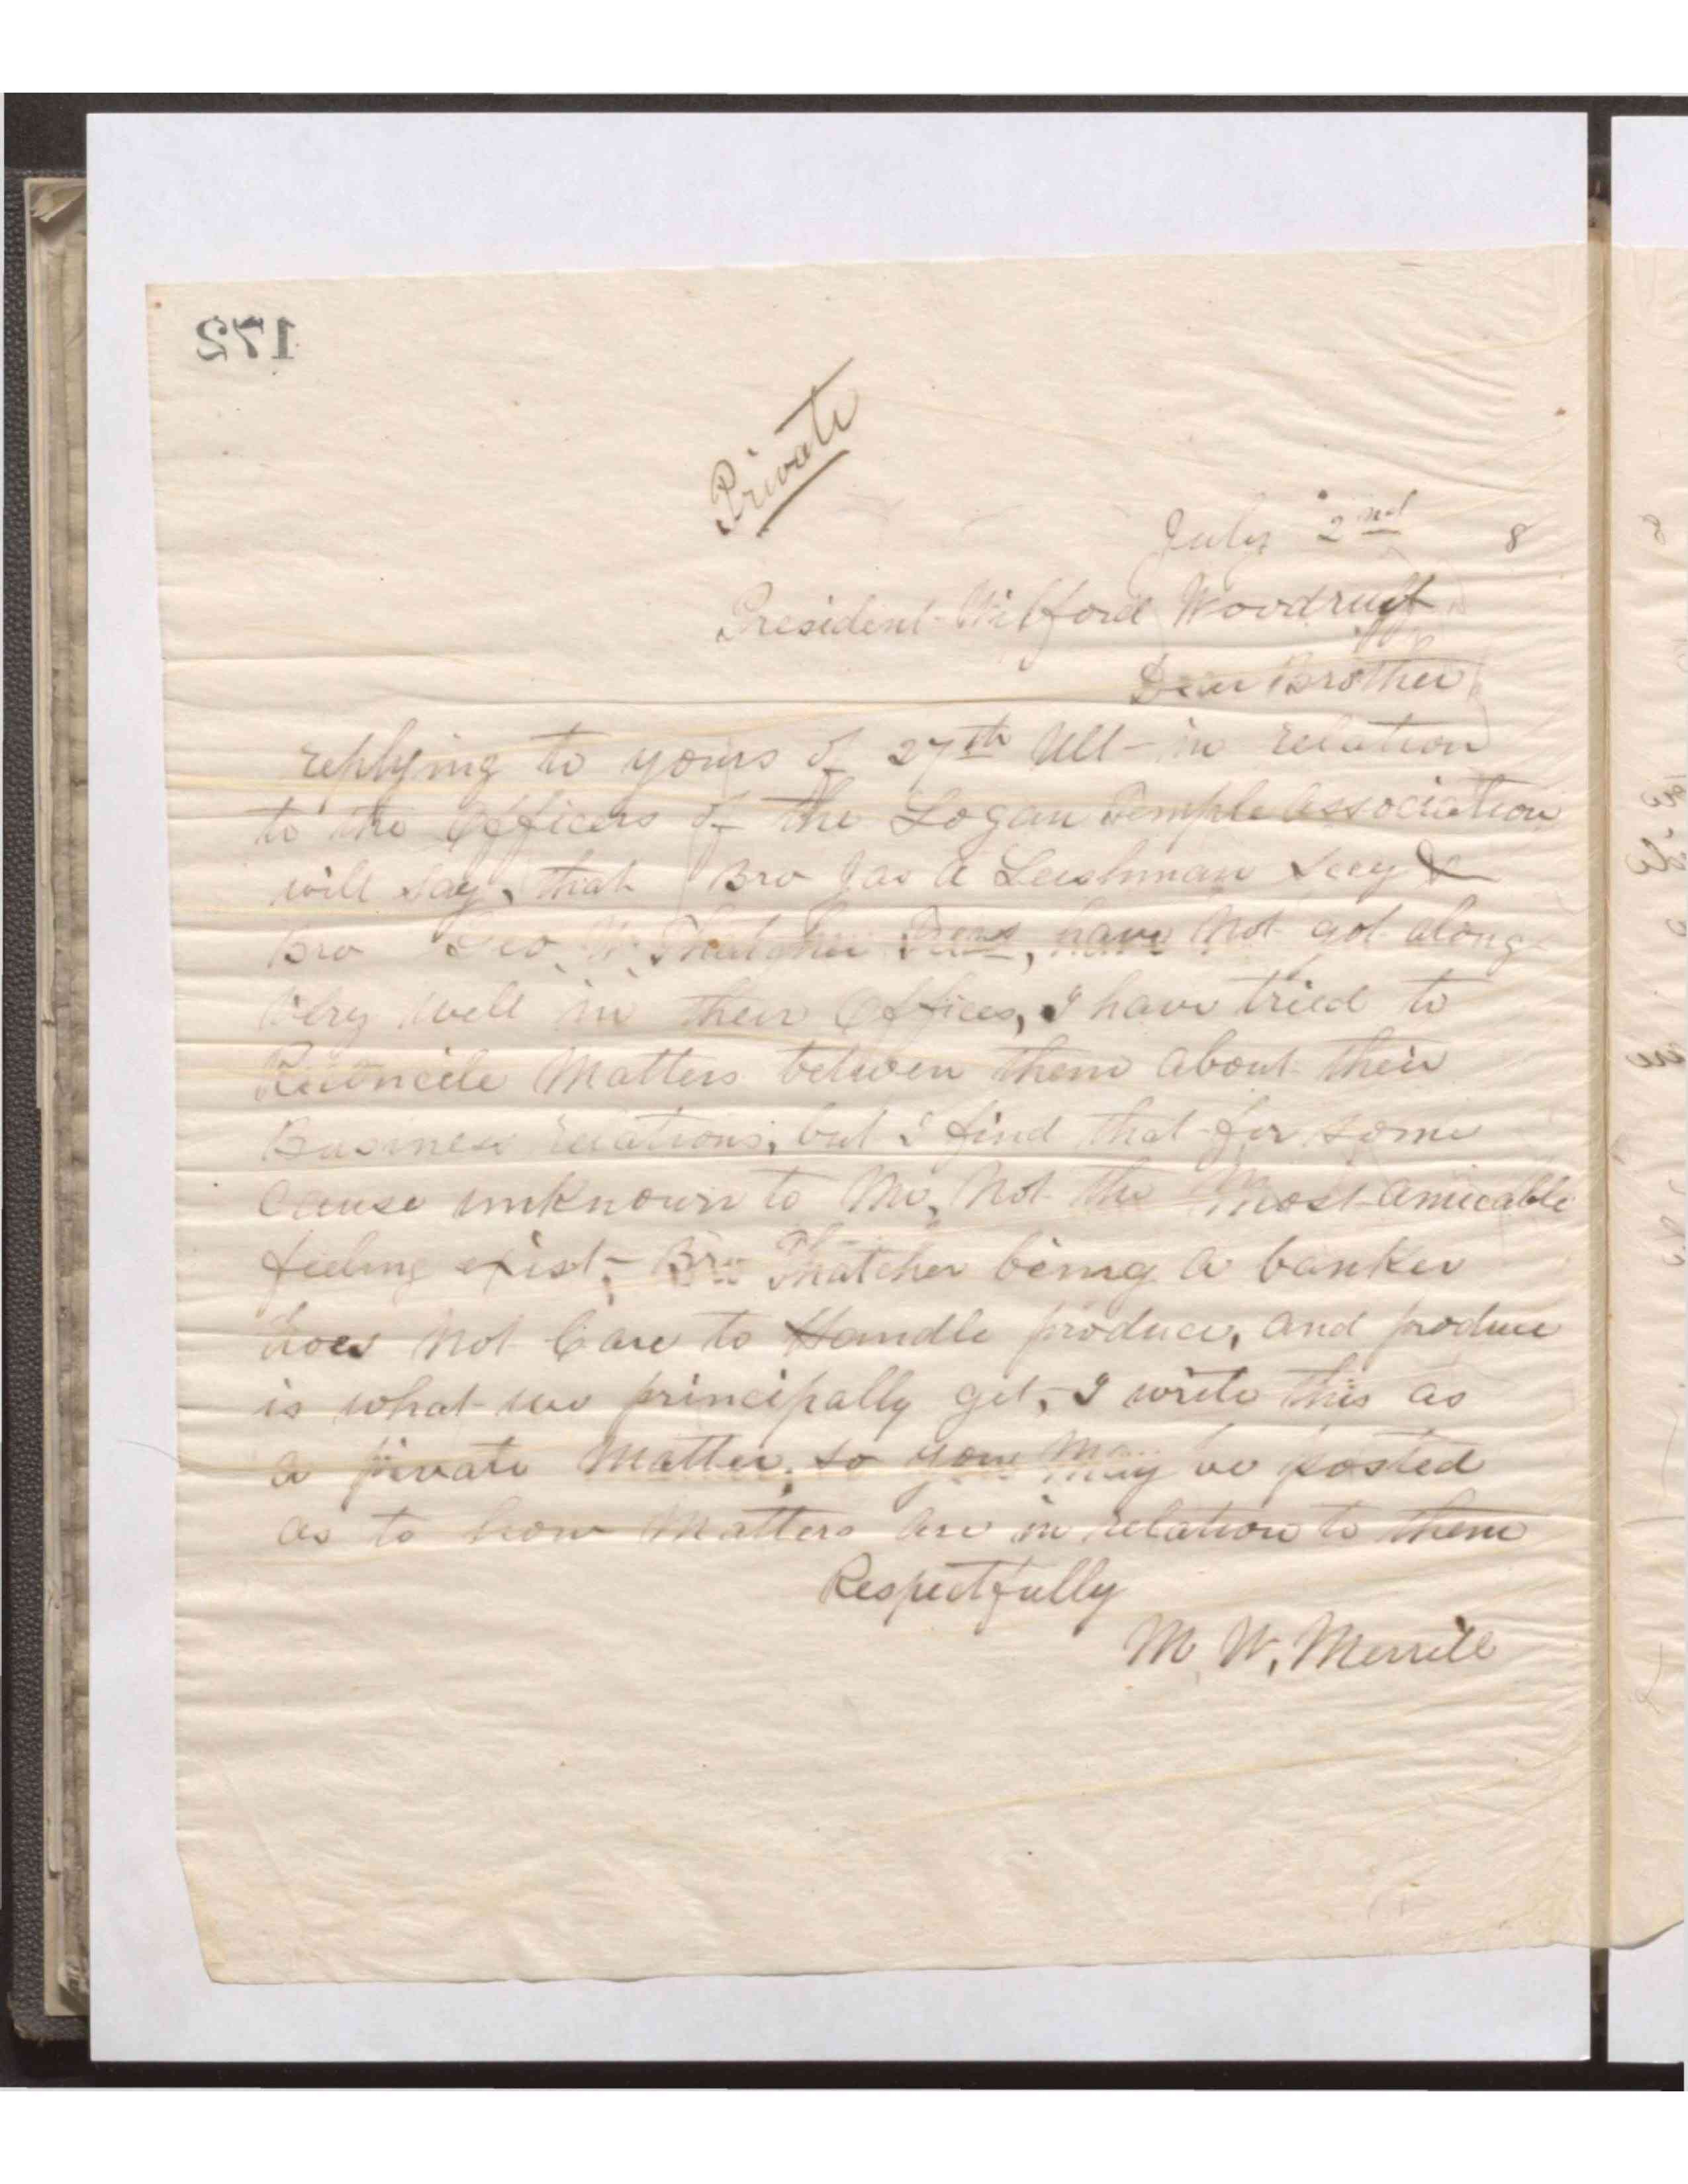 172
Private
July 2nd 8
President Wilford Woodruff
Dear Brother
replying to yours of 27th Ult - in relation
to the Officers of the Logan Temple Association
will say, that Bro Jas A Leishman Secy &
Bro Geo. W. Thatcher Treas, have not got along
very well in their Offices, I have tried to
Reconcile Matters between them about their
Business relations, but I find that for some
cause unknown to Me, Not the Most amicable
feeling exist, - Bro Thatcher being a banker
does Not Care to Handle produce, and produce
is what we principally get, I write this as
a private Matter, so you May be posted
as to how Matters are in relation to them
Respectfully
M. W. Merrill